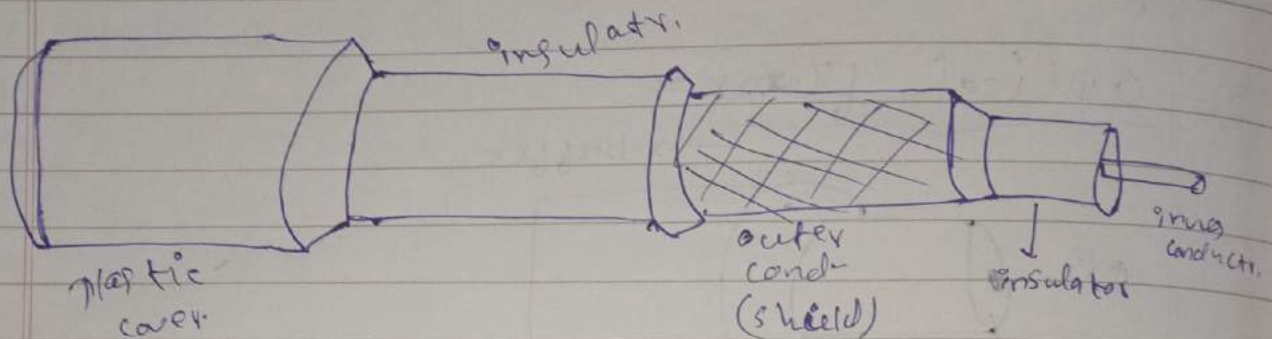 insulatr.
plastic
cover.
outer
cond-
(shield)
insulator
inner
conductr.